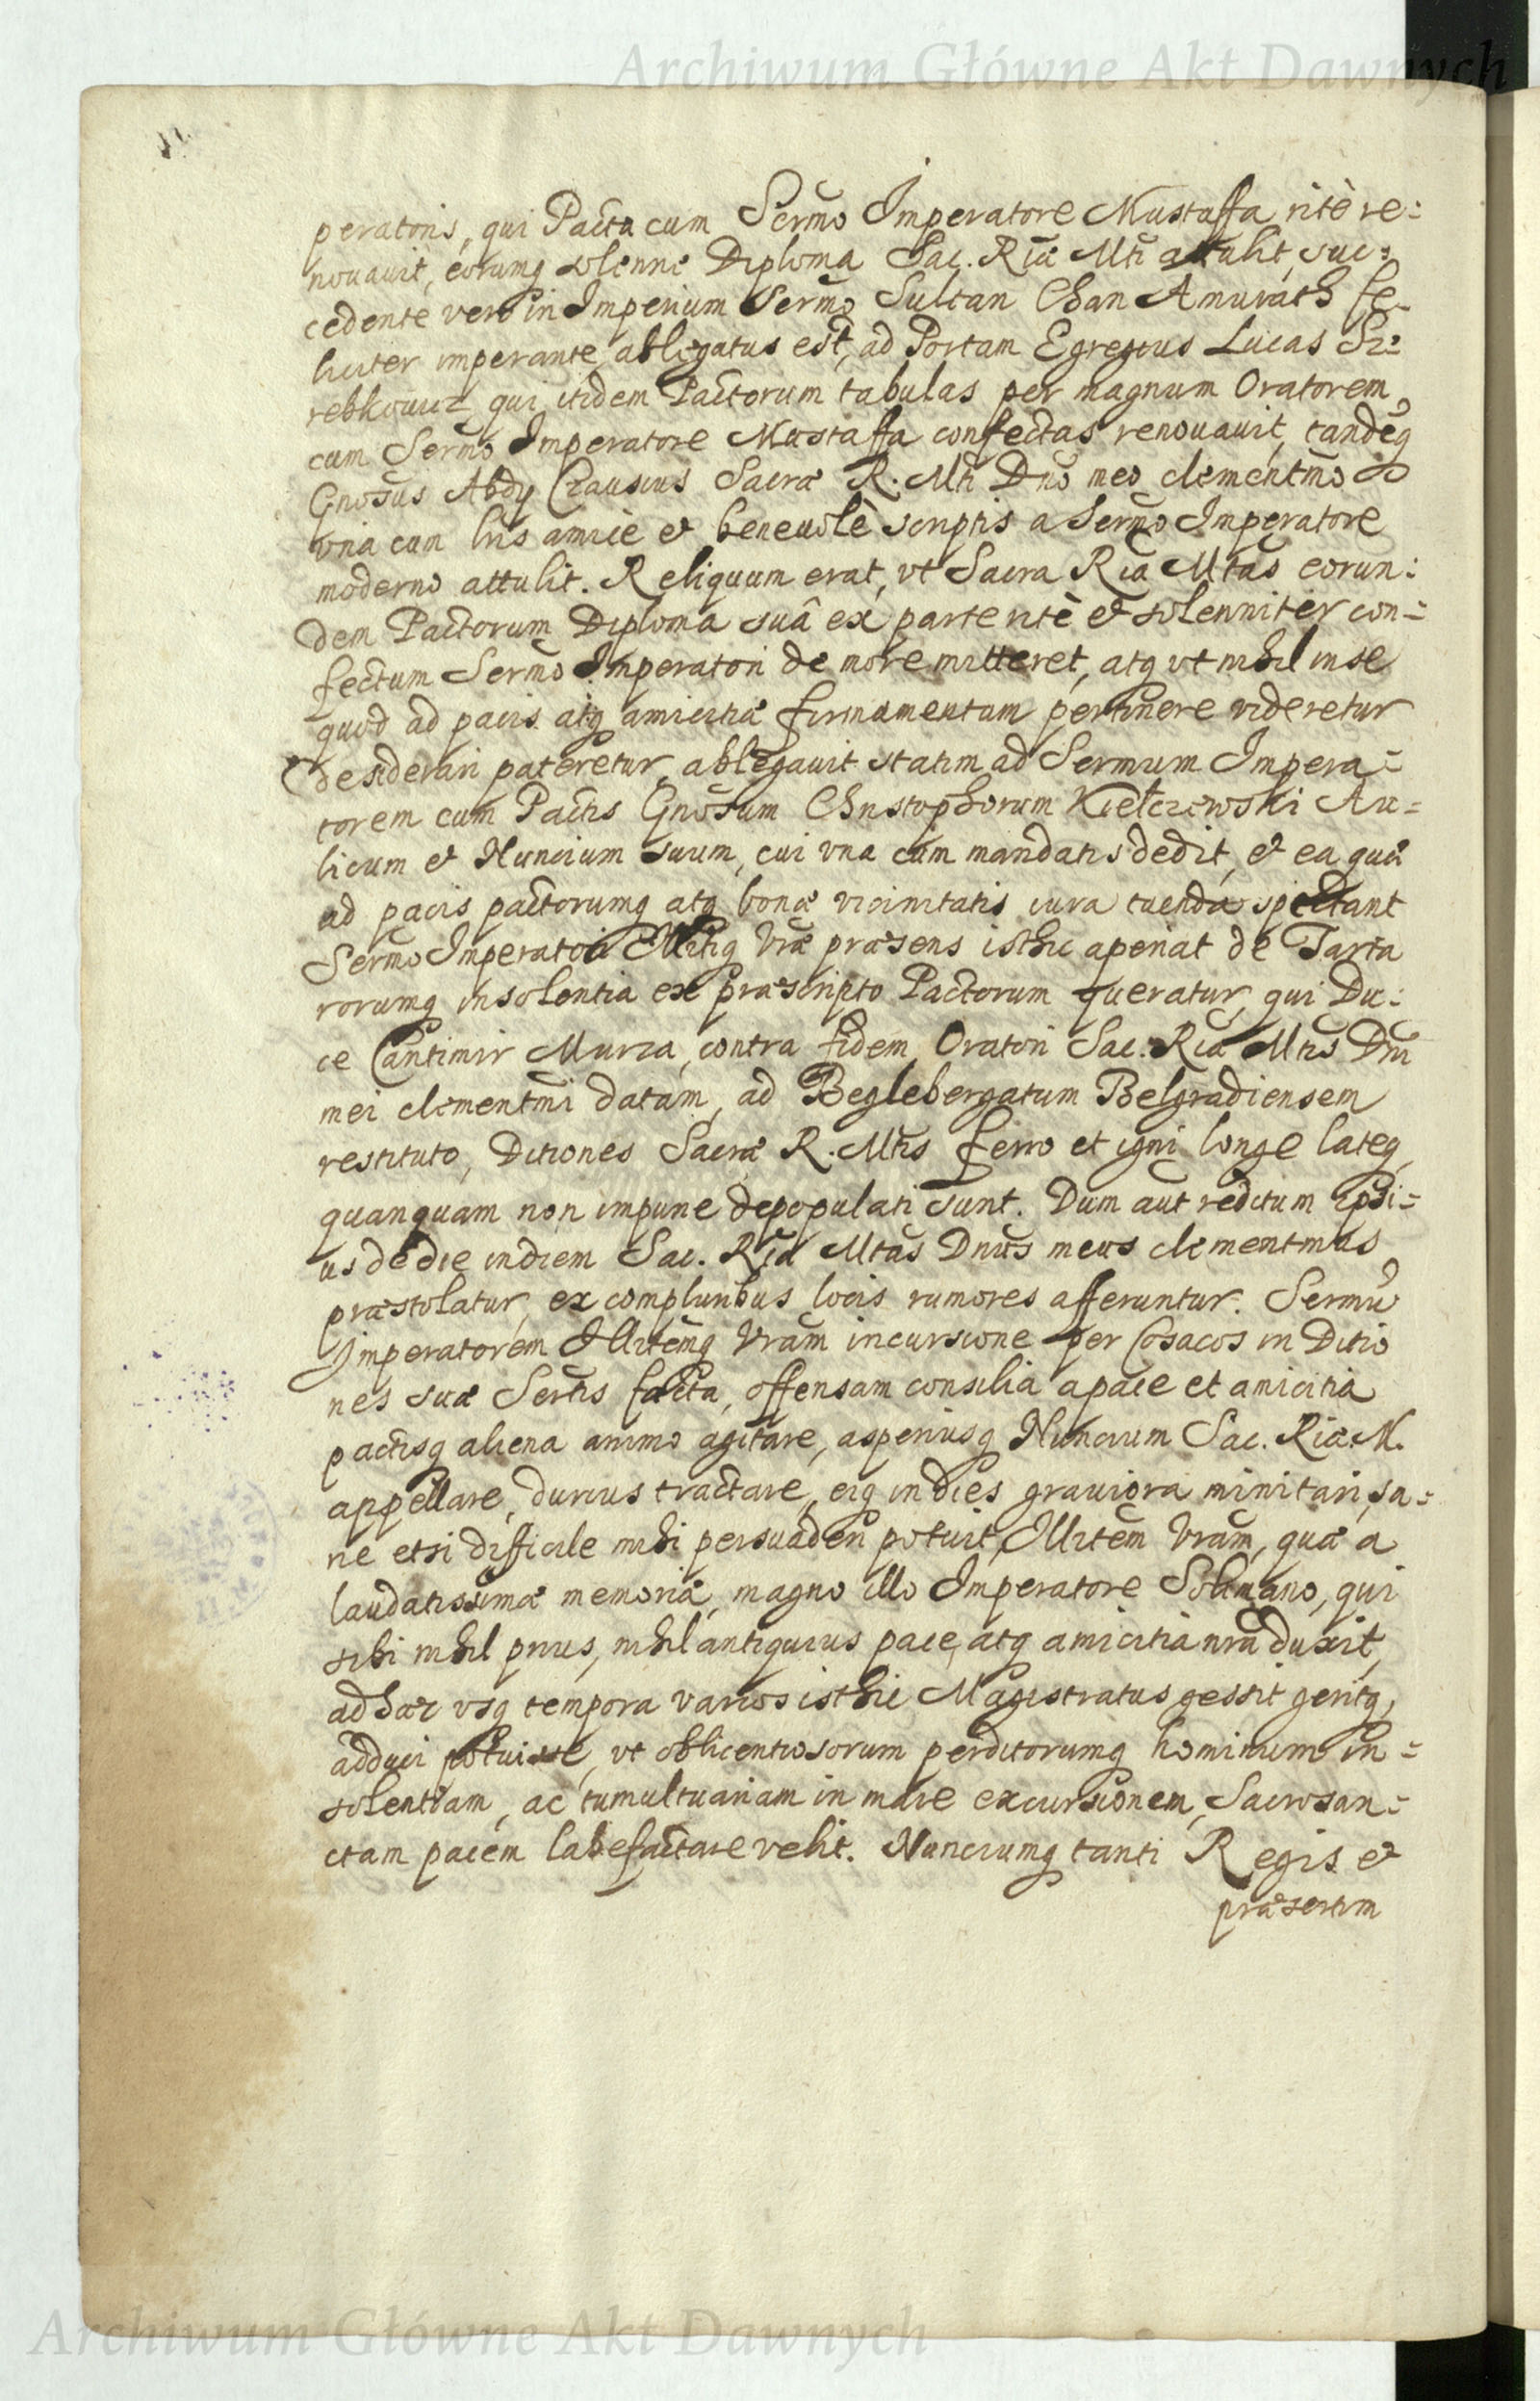 Archiwum Główne Akt Dawnych
peratoris, qui Pacta cum Sermo Imperatore Mustaffa ritè re=
nouauit, eorumq solenne Diploma Sac. Riæ Mti attulit, suc=
cedente vero in Imperium Sermo Sultan Chan Amurath fe=
liciter imperante, ablegatus est, ad Portam Egregius Lucas
qui itidem Pactorum tabulas per magnum Oratorem
cum Sermo Imperatore Mustaffa confectas renouauit, tandeq
Gnosus Abdy Czausius Sacræ R. Mti Dno meo clementmo
vna cum lris amicè et beneuolè scriptis a Sermo Imperatore
moderno attulit. Reliquum erat, vt Sacra Ria Mtas eorun=
dem Pactorum Diploma suâ ex parte ritè et solenniter con=
fectum Sermo Imperatori de more mitteret, atq vt nihil in se
quod ad pacis atq amicitiæ firmamentum pertinere videretur
desiderari pateretur, ablegauit statim ad Sermum Impera=
torem cum Pactis Gnosum Christophorum Kiełczewski Au=
licum et Nuncium suum, cui vna cum mandatis dedit, et ea quæ
ad pacis pactorumq atq bonæ vicinitatis iura tuenda spectant
Sermo Imperatori Illritiq Vræ præsens isthic aperiat de Tarta
rorumq insolentia ex præscripto Pactorum queratur, qui Du=
ce Cantimir Murza, contra fidem Oratori Sac. Riæ Mtis Dni
mei clementmi datam, ad Beglebergatum Belgradiensem
restituto, Ditiones Sacræ R. Mtis ferro et igni longe lateq,
quanquam non impune depopulati sunt. Dum aut reditum ipsi=
us de die in diem Sac. Ria Mtas Dnus meus clementmus
præstolatur, ex compluribus locis rumores afferuntur. Sermu
Imperatorem Illritemq Vram incursione per Cosacos in Ditio
nes suæ Sertis facta, offensam consilia a pace et amicitia
pactisq aliena animo agitare, asperiusq Nuncium Sac. Riæ M.
appellare, durius tractare, eiq in dies grauiora minitari, sa=
ne etsi difficile mihi persuaderi potuit, Illritem Vram, quæ a
laudatissimæ memoriæ, magno illo Imperatore Solimano, qui
sibi nihil prius, nihil antiquius pace, atq amicitia nra duxit,
ad hæc vsq tempora varios isthic Magistratus gessit geritq,
adduci potuisse, vt ob licentiosorum perditorumq hominum in=
solentiam, ac tumultuariam in mare excursionem, Sacrosan=
ctam pacem labefactare velit. Nunciumq tanti Regis et
præsertim
Archiwum Główne Akt Dawnych